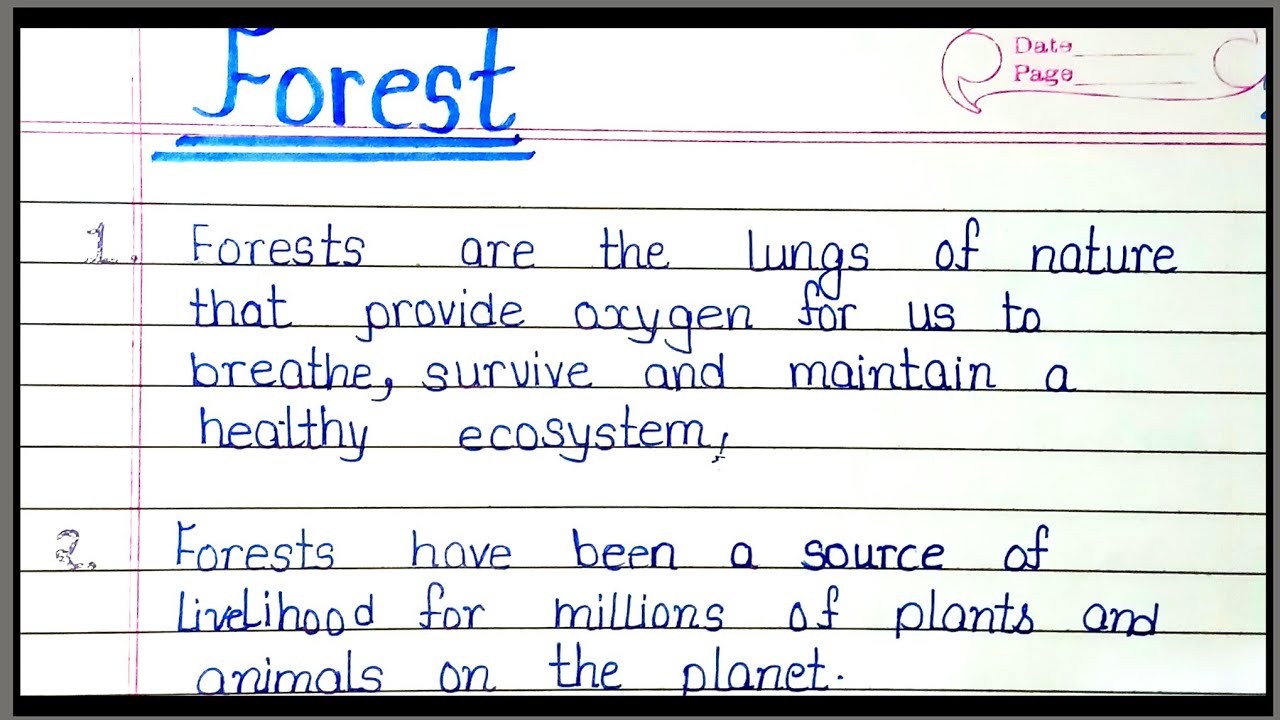 Forest
Date
Page
1. Forests are the lungs of nature
that provide oxygen for us to
breathe, survive and maintain a
healthy ecosystem,
2. Forests have been a source of
Livelihood for millions of plants and
animals on the planet.